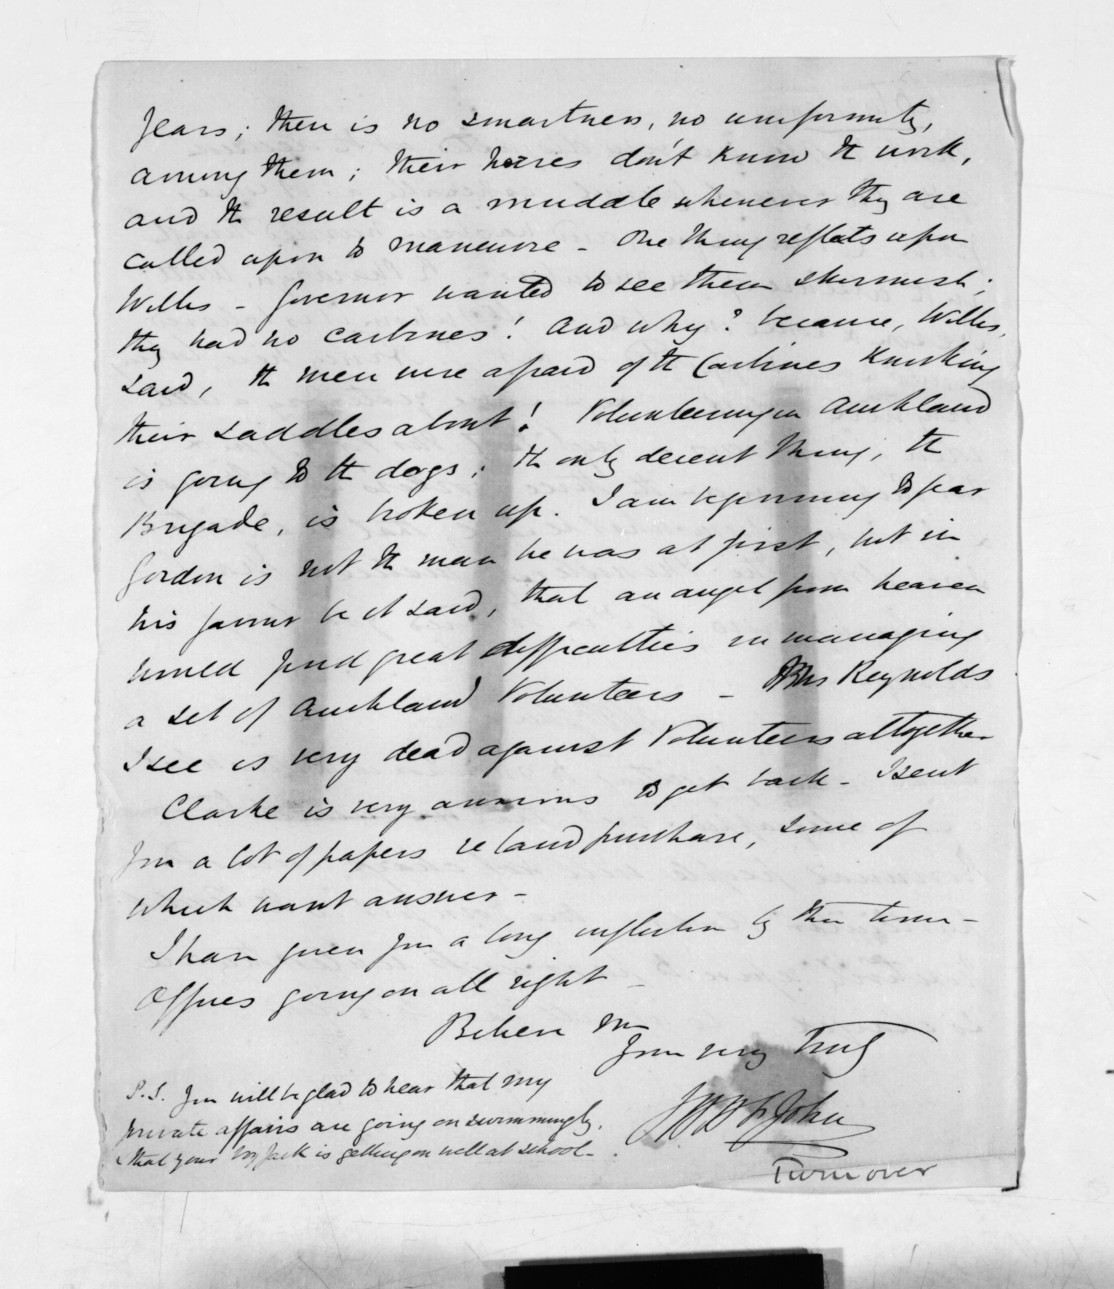 years; there is no smartness, no uniformity,
among them; their horses don't know the work,
and the result is a muddle whenever they are
called upon to maneuvre - One thing reflects upon
Willis - Governor wanted to see them skirmish;
they had no carbines! And why? because, Willis,
said, the men were afraid of the Carbines knocking
their saddles about! Volunteering in Auckland
is going to the dogs; the only decent thing, the
Brigade, is broken up. I am beginning to fear
Gordon is not the man he was at first, but in
his favour be it said, that an angel from heaven
would find great difficulties in managing
a set of Auckland Volunteers - Reynolds
I see is very dead against Volunteers altogether
Clarke is very anxious to get back - I sent
you a lot of papers re land purchase, some of
which want answer -
I have given you a long infliction by this time -
Offices going on all right -
Believe me
Your very truly
J H H St John
P.S. You will be glad to hear that my
private affairs are going on swimmingly,
& that your boy Jack is getting on well at school -
Turn over